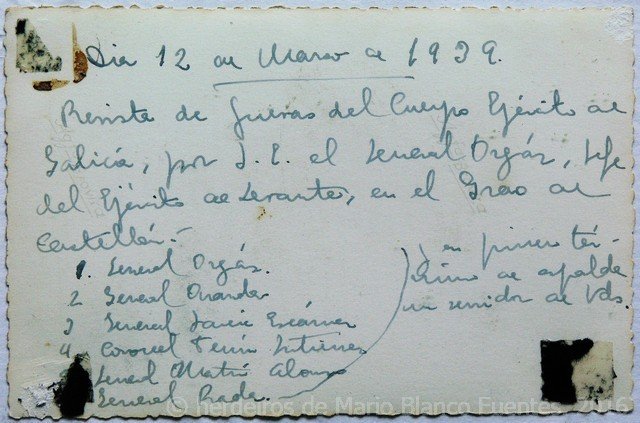 Dia 12 de Marzo de 1939.
Revista de fuerzas del Cuerpo Ejército de
Galicia, por S. E. el General Orgáz, Jefe
del Ejército de Levante, en el Grao de
Castellón.-
1. General Orgáz.
2 General Aranda
3 General Javier
4 Coronel Gutierrez
General Martin Alonso
General Prada.
y en primer tér-
mino de espalda
un servidor de Vds.
© herdeiros de Mario Blanco Fuentes, 2016